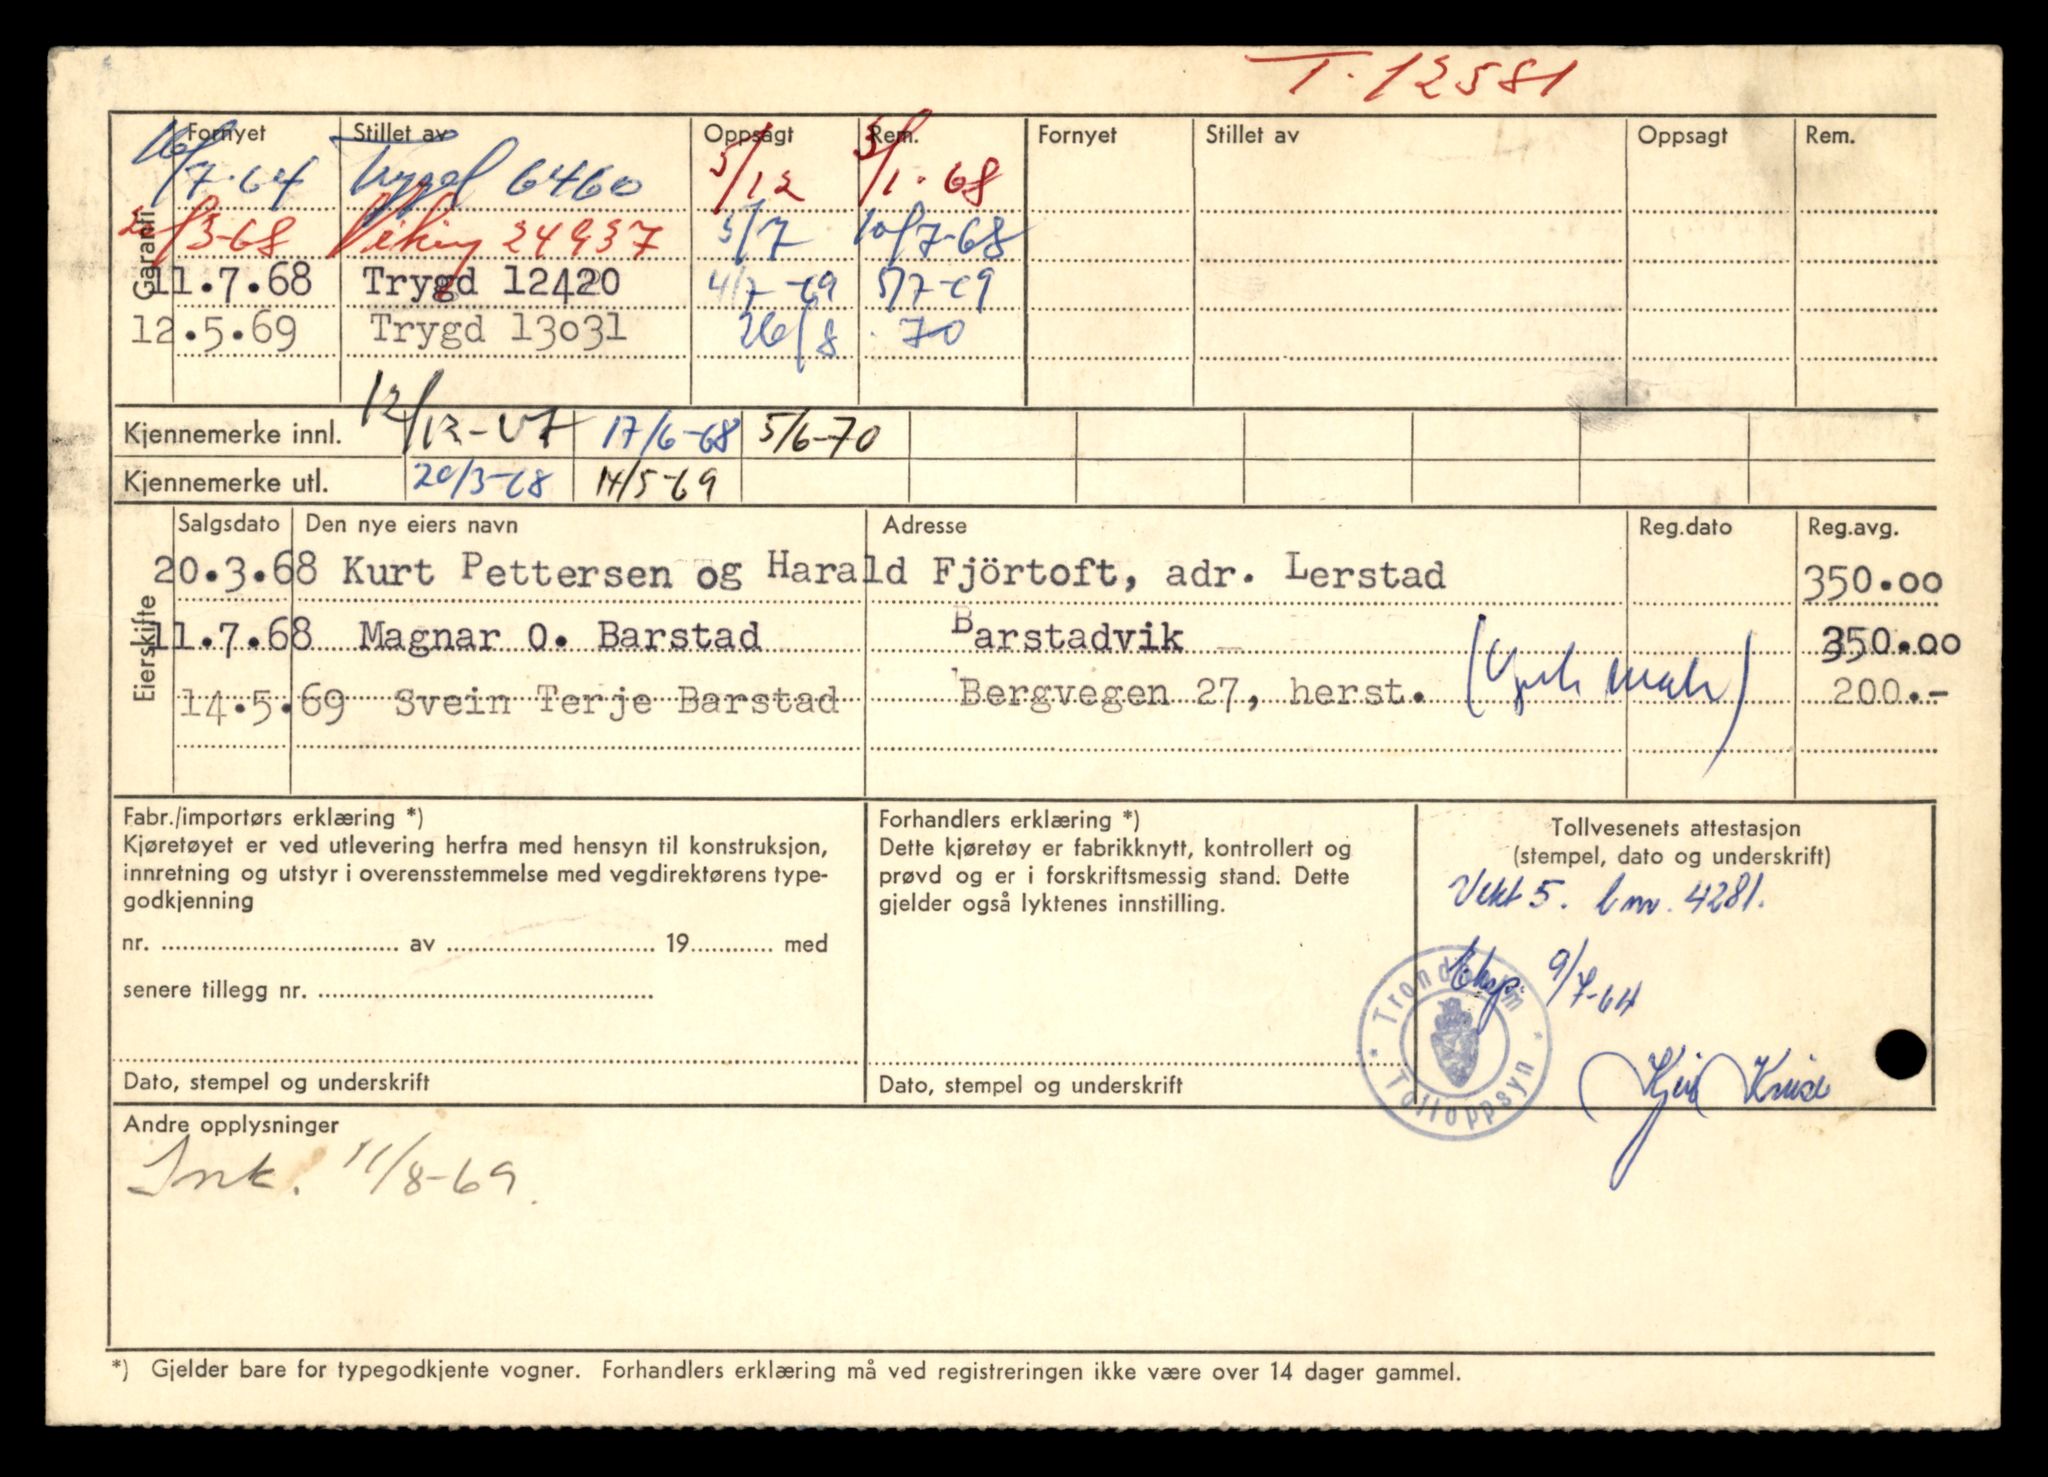 T. 12581
Fornyet Stillet av Oppsagt Rem. Fornyet Stillet av Oppsagt Rem.
16/7-64 Trygd 6460 5/12 5/1-68
Garanti
/3-68 Viking 24937 5/7 10/7-68
11.7.68 Trygd 12420 4/7-69 5/7-69
12.5.69 Trygd 13031 26/8 70
Kjennemerke innl. 12/12-67 17/6-68 5/6-70
Kjennemerke utl. 20/3-68 14/5-69
Eierskifte
Salgsdato Den nye eiers navn Adresse Reg.dato Reg.avg.
20.3.68 Kurt Pettersen og Harald Fjörtoft, adr. Lerstad 350.00
11.7.68 Magnar O. Barstad Barstadvik 350.00
14.5.69 Svein Terje Barstad Bergvegen 27, herst. 200.-
Fabr./importørs erklæring *)
Kjøretøyet er ved utlevering herfra med hensyn til konstruksjon,
innretning og utstyr i overensstemmelse med vegdirektørens type-
godkjenning
nr. av 19 med
senere tillegg nr.
Dato, stempel og underskrift
Forhandlers erklæring *)
Dette kjøretøy er fabrikknytt, kontrollert og
prøvd og er i forskriftsmessig stand. Dette
gjelder også lyktenes innstilling.
Dato, stempel og underskrift
Tollvesenets attestasjon
(stempel, dato og underskrift)
Vekt 5. 4281.
Eksp. 9/7-64
Trondheim Tolloppsyn
Andre opplysninger
Ink. 11/8-69.
*) Gjelder bare for typegodkjente vogner. Forhandlers erklæring må ved registreringen ikke være over 14 dager gammel.